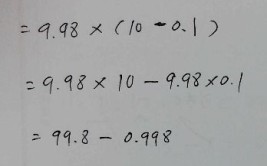 = 9.98 × (10 - 0.1)
= 9.98 × 10 - 9.98 × 0.1
= 99.8 - 0.998